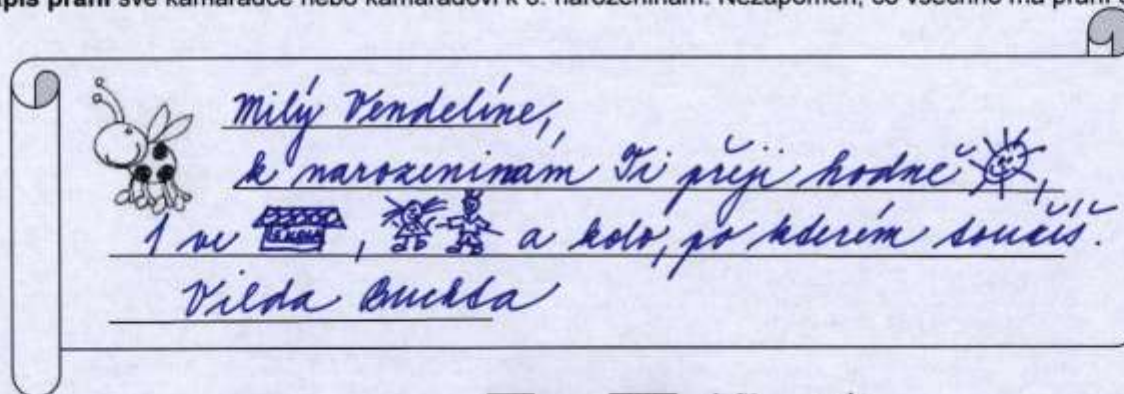 apiš přání své kamarádce nebo kamarádovi k 8. narozeninám. Nezapomeň, co všechno má přání
Milý Vendelíne,
k narozeninám Ti přeji hodně ,
1 ve ŠKOLA , a kolo, po kterém toužíš.
Vilda Buchta